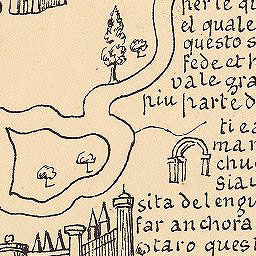 per le qu
el quale
questo s
fede et h
vale gra
piu parte d
ti ea
mar
chu
siau
sita del engu
far anchora
otaro quest